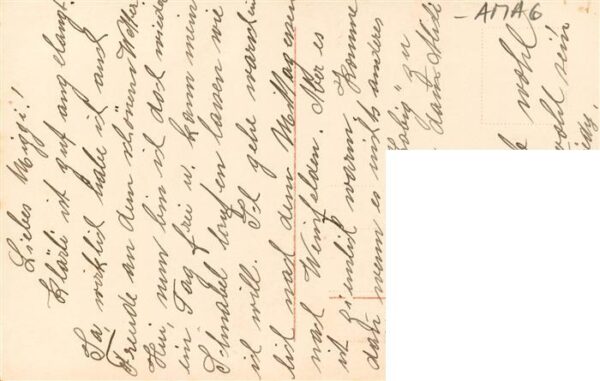 Liebes Miggi!
Klärli ist gut angelangt.
Ja, wirklich habe ich auch
Freude an dem schönen Wetter.
Hin, nun bin ich doch wieder
ein Tag frei u. kann mein
Schnabel laufen lassen wie
ich will. Ich gehe
nach dem Mittagessen
nach Weinfelden. Aber es
ist ziemlich warm. Komme
dah wenn es nichts anderes
wohl
wohl sein
-AMAG